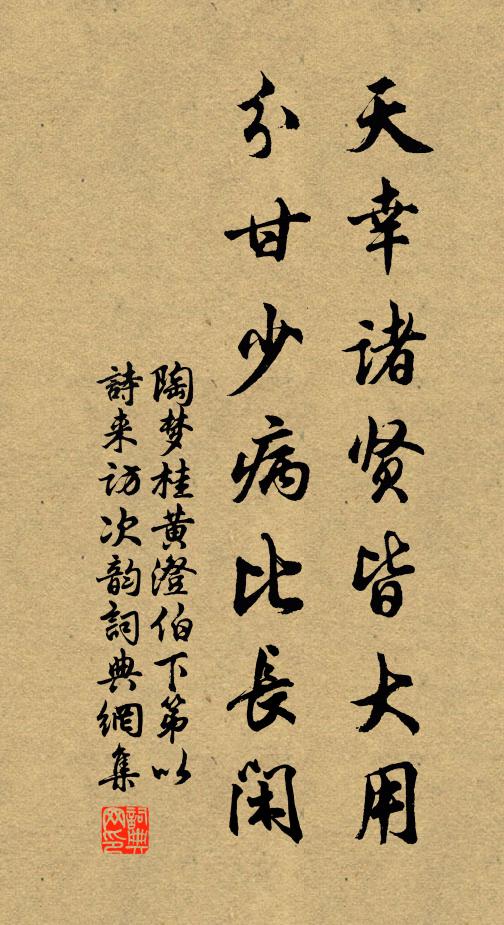 天幸诸贤皆大用
分甘少病比長闲
陶梦桂黄澄伯下第以
詩来访次韵詞典網集
詞典
网印